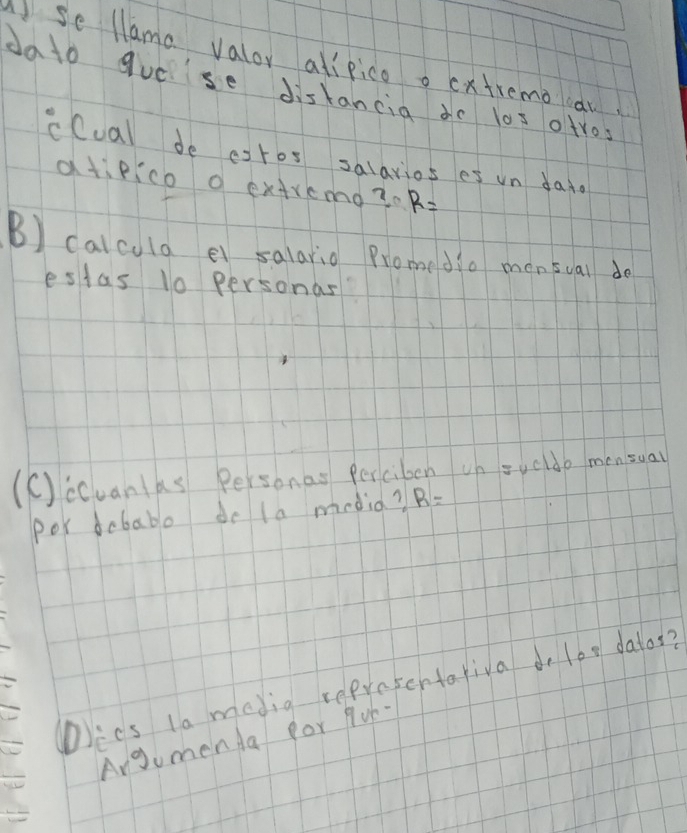 A) se llama valor atípico o extremo al
dato que se distancia de los otros
¿Cual de estos salarios es un dato
atipico o extremo? R=
B) calcula el salario Promedio mensual de
estas 10 Personas
(C) ¿cuantas Personas Perciben un sueldo mensual
por debabo de la media? R=
(D) ¿es la media representativa de los datos?
Argumenta por que-